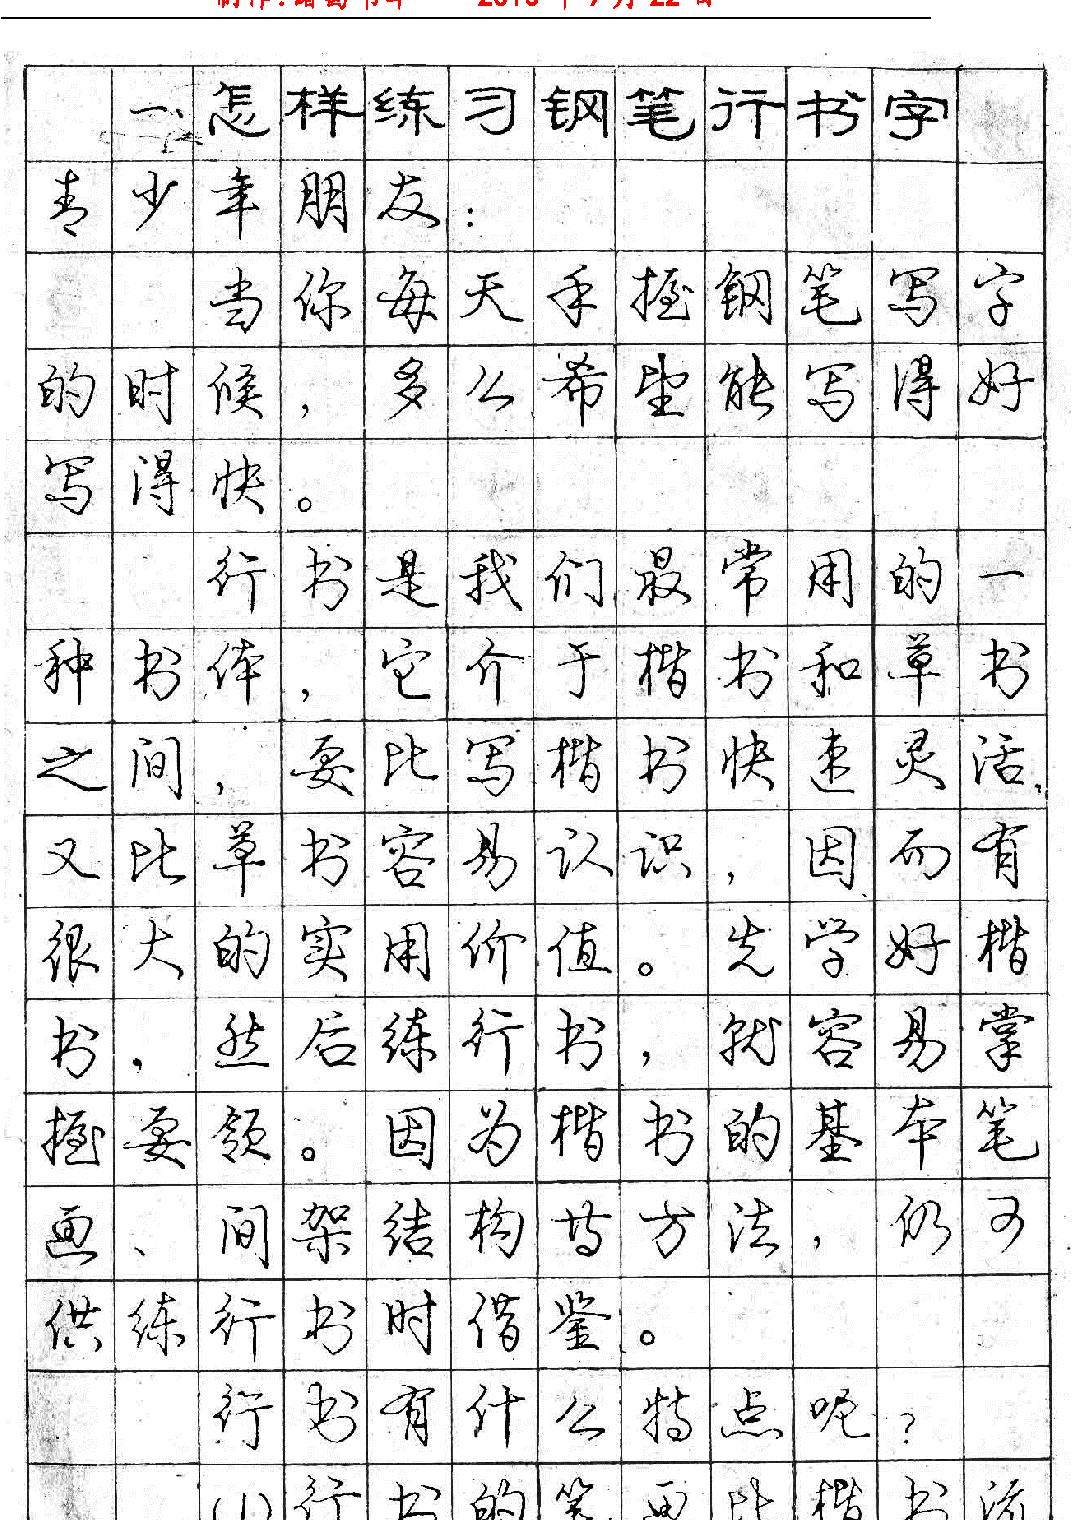 一、怎样练习钢笔行书字
青少年朋友：
当你每天手握钢笔写字
的时候，多么希望能写得好
写得快。
行书是我们最常用的一
种书体，它介于楷书和草书
之间，要比写楷书快速灵活，
又比草书容易认识，因而有
很大的实用价值。先学好楷
书，然后练行书，就容易掌
握要领。因为楷书的基本笔
画、间架结构等方法，仍可
供练行书时借鉴。
行书有什么特点呢？
(1)行书的笔画比楷书流